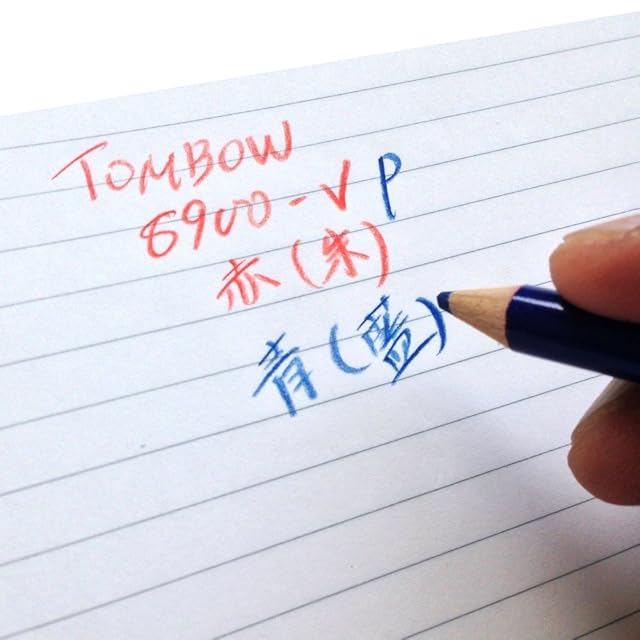 TOMBOW
8900-VP
赤(朱)
青(藍)